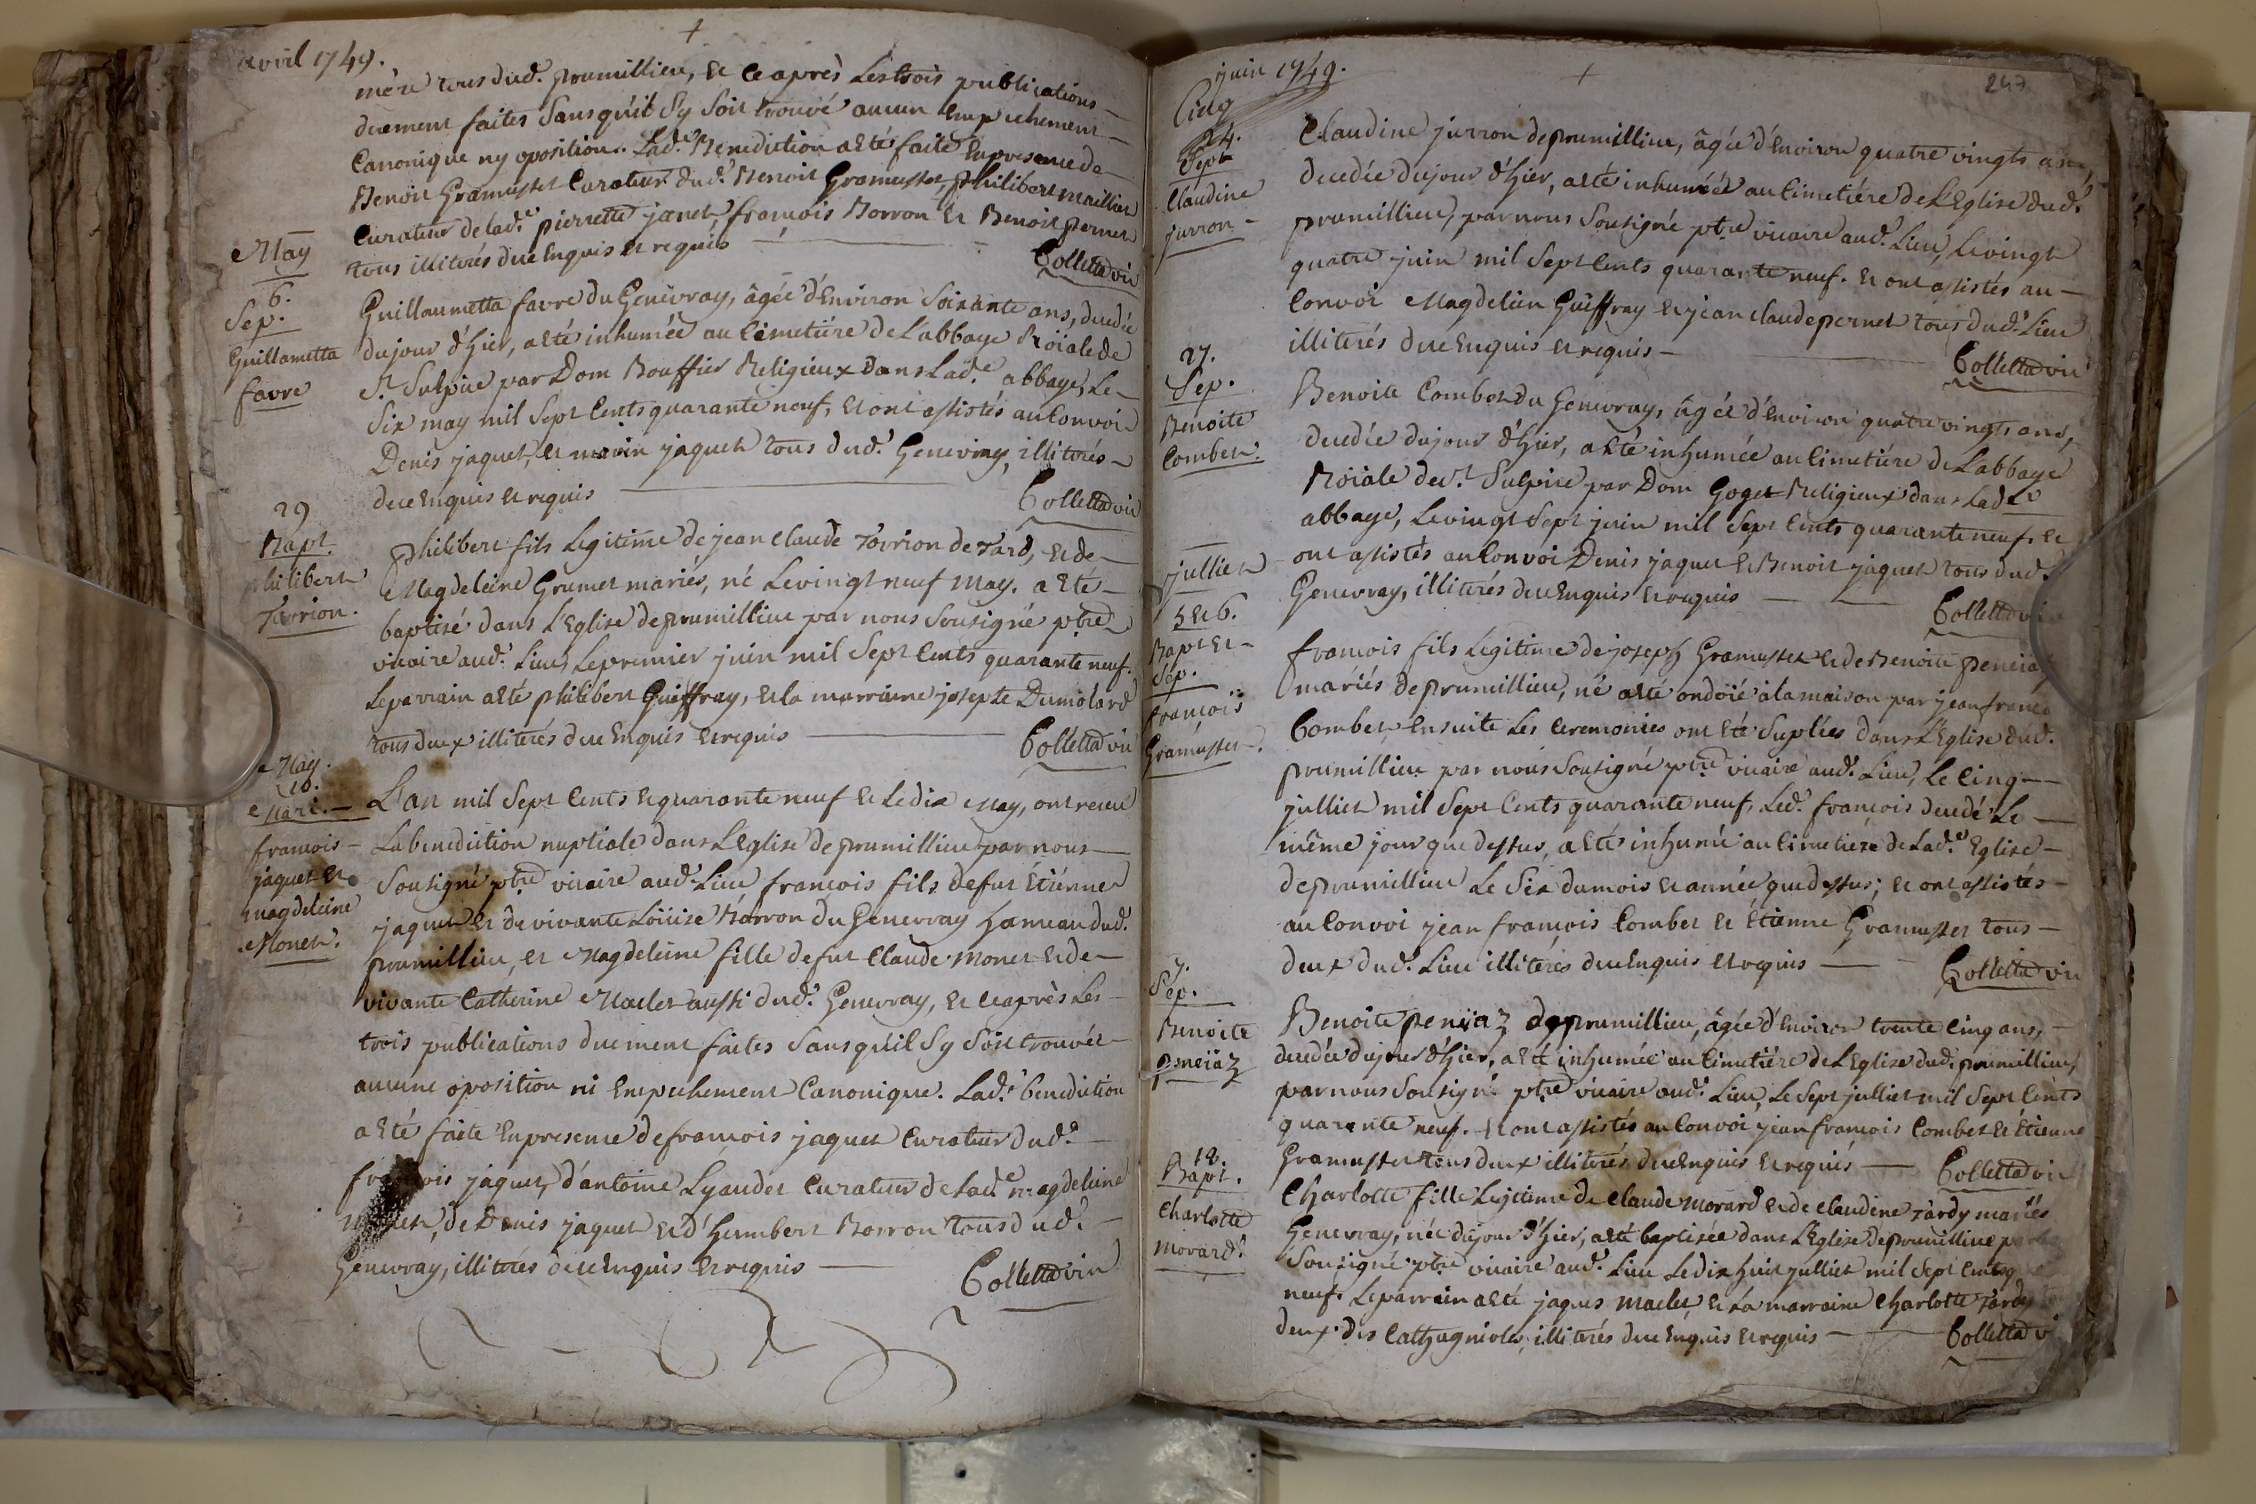 avril 1749.
mère tous dud.t prumillieu, et ce après Les trois publications
duement faites Sans qu'il Sy Soit trouvé aucun Empechement
Canonique ny oposition. Lad.e Benediction a Eté faite En presence de
Benoit Gramusset Curateur dud.t Benoit Gramusset, philibert maillier
Curateur de lad.e pierrette janet, françois Borron Et Benoit pernet
tous illiterés de ce Enquis et requis
Colletta vic
May
6.
Sep.
Guillametta
favre
Guillaumetta favre du Genevray, âgée d'Environ Soixante ans, decedée
du jour d'hier, a eté inhumée au Cimetiére de L'abbaye Roiale de
S.t Sulpice par Dom Bouffier Religieux dans Lad.e abbaye, Le
Six may mil Sept Cents quarante neuf, et ont assistés au Convoi
Denis jaquet, et marin jaquet tous dud.t Genevray, illiterés
de ce Enquis et requis
Colletta vic
29
Bapt.
philibert
Torrion.
philibert fils Legitime de jean claude Torrion de Tard, et de
Magdeleine Grumet mariés, né Le vingt neuf May. a eté
baptisé dans L'Eglise de prumillieu par nous Sousigné ptre
vicaire aud.t Lieu, Le premier juin mil Sept Cents quarante neuf.
Le parrain a eté philibert Guiffray, et la marraine josepte Dumolard
tous deux illiterés de ce Enquis et requis
Colletta vic
May.
10.
Mari.
françois
jaquet et
magdeleine
Monet.
L'an mil Sept Cents et quarante neuf et Le dix May, ont receu
La benediction nuptiale dans L'Eglise de prumillieu par nous
Sousigné ptre vicaire aud.t Lieu françois fils de fut Étienne
jaquet et de vivante Loüise Borron du Genevray hameau dud.t
prumillieu, et Magdeleine fille de fut Claude Monet et de
vivante Catherine Maclet aussi dud.t Genevray, et ce après Les
trois publications duement faites Sans qu'il Sy Soit trouvée
aucune oposition ni Empechement Canonique. Lad.e benediction
a Eté faite En presence de françois jaquet Curateur dud.t
françois jaquet, d'antoine Lyaudet Curateur de Lad.e magdeleine
Monet, de Denis jaquet et d'humbert Borron tous dud.t
Genevray, illiterés de ce Enquis et requis
Colletta vic
juin 1749.
247
24.
Sept
Claudine
jurron
Claudine jurron de prumillieu, âgée d'Environ quatre vingts ans,
decedée du jour d'hier, a eté inhumée au Cimetiére de L'Eglise dud.t
prumillieu, par nous Sousigné ptre vicaire aud.t Lieu, Le vingt
quatre juin mil Sept Cents quarante neuf. et ont assistés au
Convoi Magdelein Guiffray et jean claude pernet tous dud.t Lieu
illiterés de ce Enquis et requis
Colletta vic
27.
Sep.
Benoite
Combet.
Benoite Combet du Genevray, âgée d'Environ quatre vingts ans,
decedée du jour d'hier, a eté inhumée au Cimetiére de L'abbaye
Roiale de S.t Sulpice par Dom Goget Religieux dans Lad.e
abbaye, Le vingt Sept juin mil Sept Cents quarante neuf, et
ont assistés au Convoi Denis jaquet et Benoit jaquet tous dud.t
Genevray, illiterés de ce Enquis et requis
Colletta vic
julliet
5 et 6.
Bapt et
Sép.
françois
Gramusset.
françois fils Légitime de joseph Gramusset et de Benoite peneiaz
mariés de prumillieu, né a eté ondoié à la maison par jean françois
Combet Ensuite Les Ceremonies ont Eté Suplées dans L'Eglise dud.t
prumillieu par nous Sousigné ptre vicaire aud.t Lieu, Le Cinq
julliet mil Sept Cents quarante neuf, Led.t françois decedé Le
même jour que dessus, a eté inhumé au Cimetiére de Lad.e Eglise
de prumillieu Le Six du mois et année que dessus; et ont assistés
au Convoi jean françois Combet et Étienne Gramusset tous
deux dud.t Lieu illiterés de ce Enquis et requis
Colletta vic
7.
Sép.
Benoite
peneiaz
Benoite peneiaz de prumillieu, âgée d'Environ trente Cinq ans,
decedée du jour d'hier, a eté inhumée au Cimetiére de L'Eglise dud.t prumillieu,
par nous Sousigné ptre vicaire aud.t Lieu, Le Sept julliet mil Sept Cents
quarante neuf. et ont assistés au Convoi jean françois Combet et Étienne
Gramusset tous deux illiterés de ce Enquis et requis
Colletta vic
18.
Bapt.
Charlotte
Morard.
Charlotte fille Legitime de Claude Morard et de Claudine Tardy mariés
Genevray, née du jour d'hier, a eté baptisée dans L'Eglise de prumillieu par
Sousigné ptre vicaire aud.t Lieu Le dix huit julliet mil Sept Cents
neuf. Le parrain a eté jaques Maclet, et La marraine Charlotte Tardy
deux des Cathagnioles, illiterés de ce Enquis et requis
Colletta vic